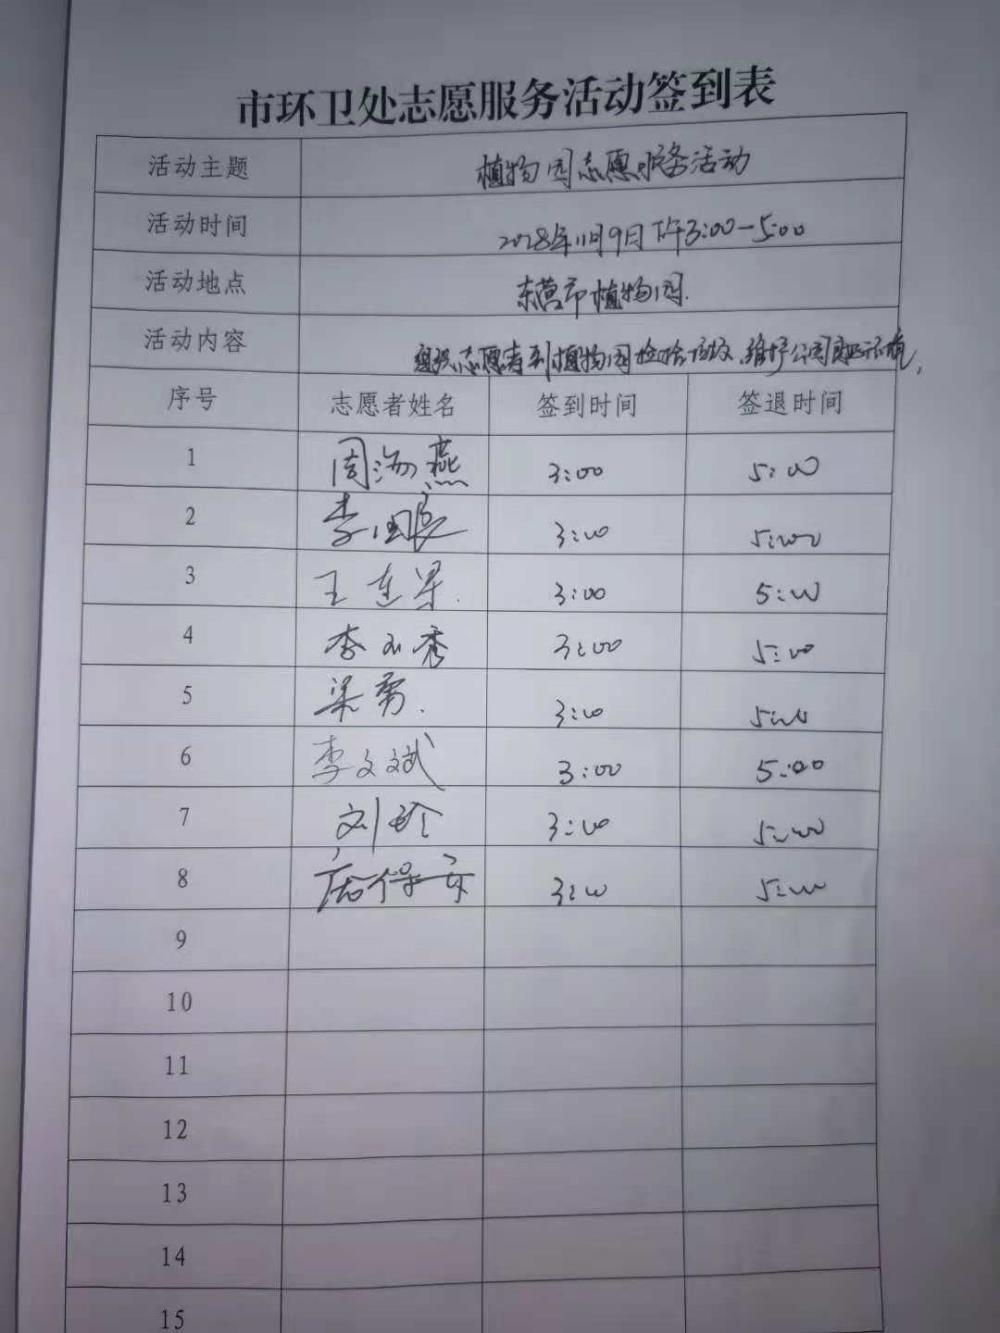 市环卫处志愿服务活动签到表
活动主题 植物园志愿服务活动
活动时间 2028年11月9日下午3:00-5:00
活动地点 东营市植物园.
活动内容 组织志愿者到植物园捡拾垃圾、维护公园
序号 志愿者姓名 签到时间 签退时间
1 周海燕 3:00 5:00
2 李国 3:00 5:00
3 王 3:00 5:00
4 李玉秀 3:00 5:00
5 梁勇. 3:00 5:00
6 李文斌 3:00 5:00
7 刘玲 3:00 5:00
8 3:00 5:00
9
10
11
12
13
14
15